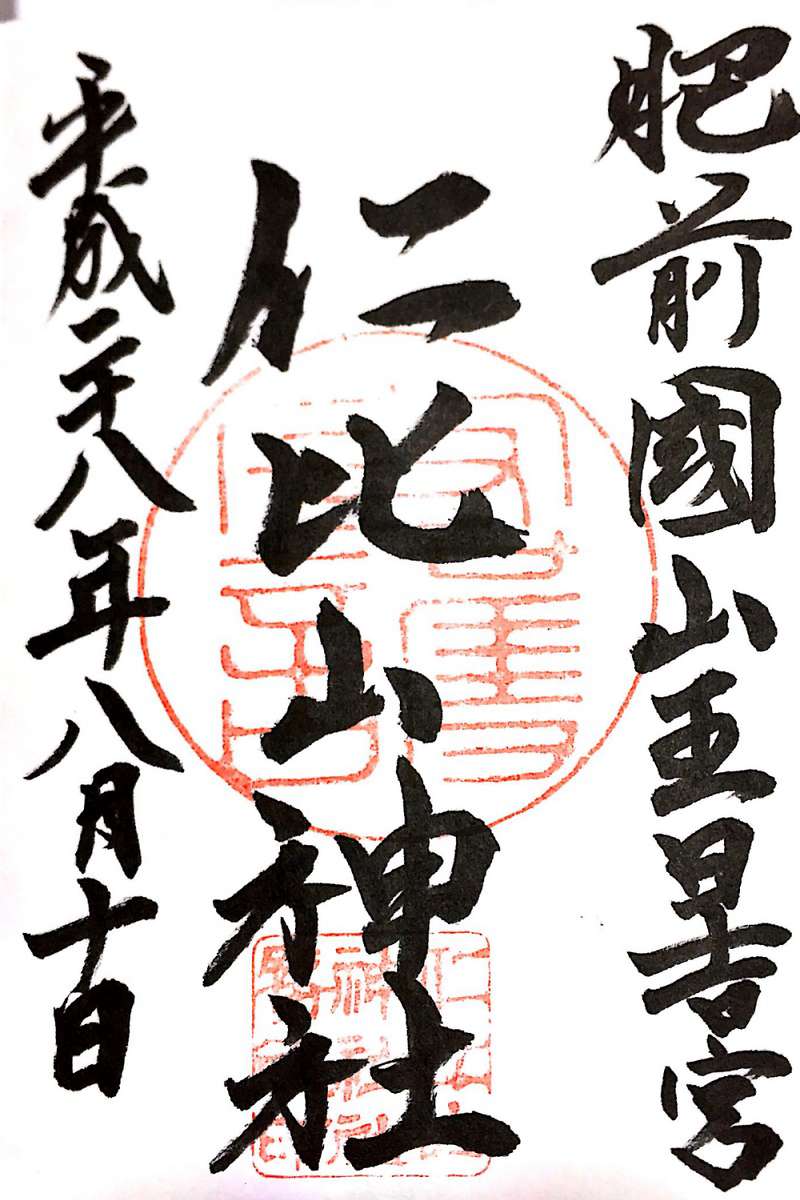 肥前國山王日吉宮
仁比山神社
平成二十八年八月十日